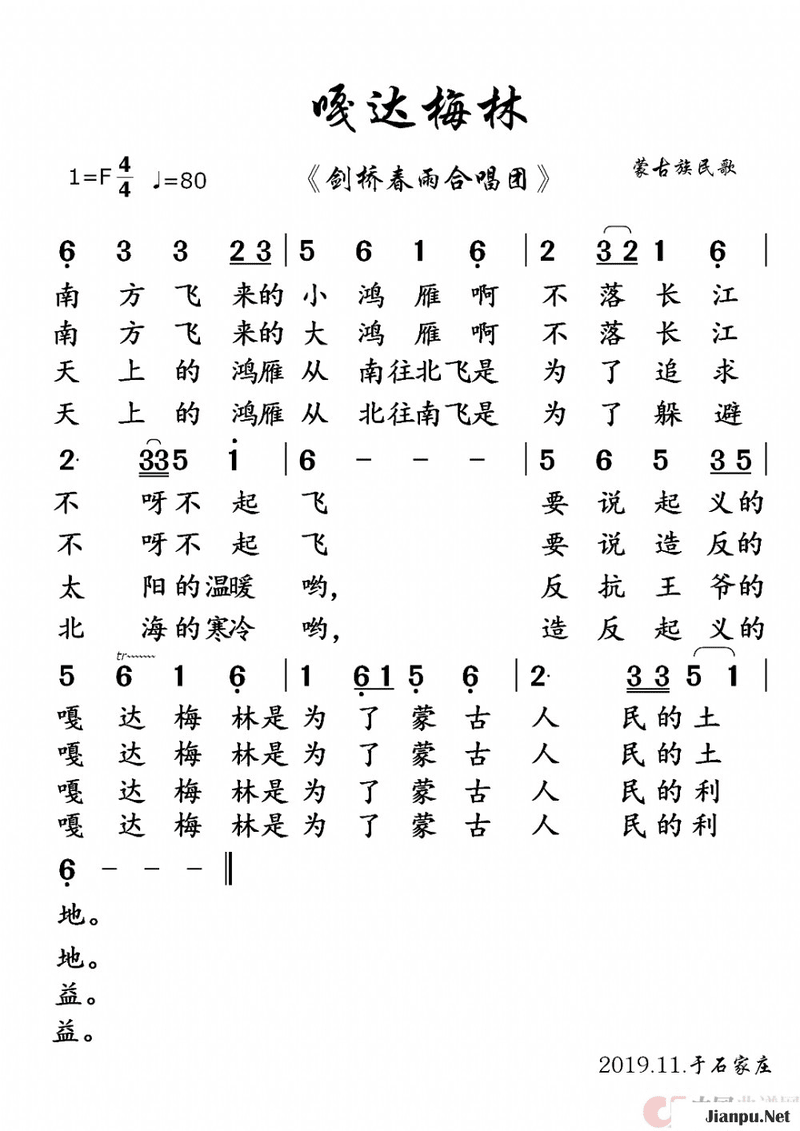 嘎达梅林
1=F 4/4 ♩=80 《剑桥春雨合唱团》 蒙古族民歌
6̣ 3 3 2 3 | 5 6 1 6̣ | 2 3 2 1 6̣ |
南方飞来的小鸿雁啊 不落长江
南方飞来的大鸿雁啊 不落长江
天上的鸿雁从南往北飞是为了追求
天上的鸿雁从北往南飞是为了躲避
2· 3 3 5 i | 6 － － | 5 6 5 3 5 |
不呀不起飞 要说起义的
不呀不起飞 要说造反的
太阳的温暖哟， 反抗王爷的
北海的寒冷哟， 造反起义的
tr
5 6 1 6̣ | 1 6̣ 1 5̣ 6̣ | 2· 3 3 5 1 |
嘎达梅林是为了蒙古人民的土
嘎达梅林是为了蒙古人民的土
嘎达梅林是为了蒙古人民的利
嘎达梅林是为了蒙古人民的利
6̣ － － － ‖
地。
地。
益。
益。
2019.11.于石家庄
Jianpu.Net